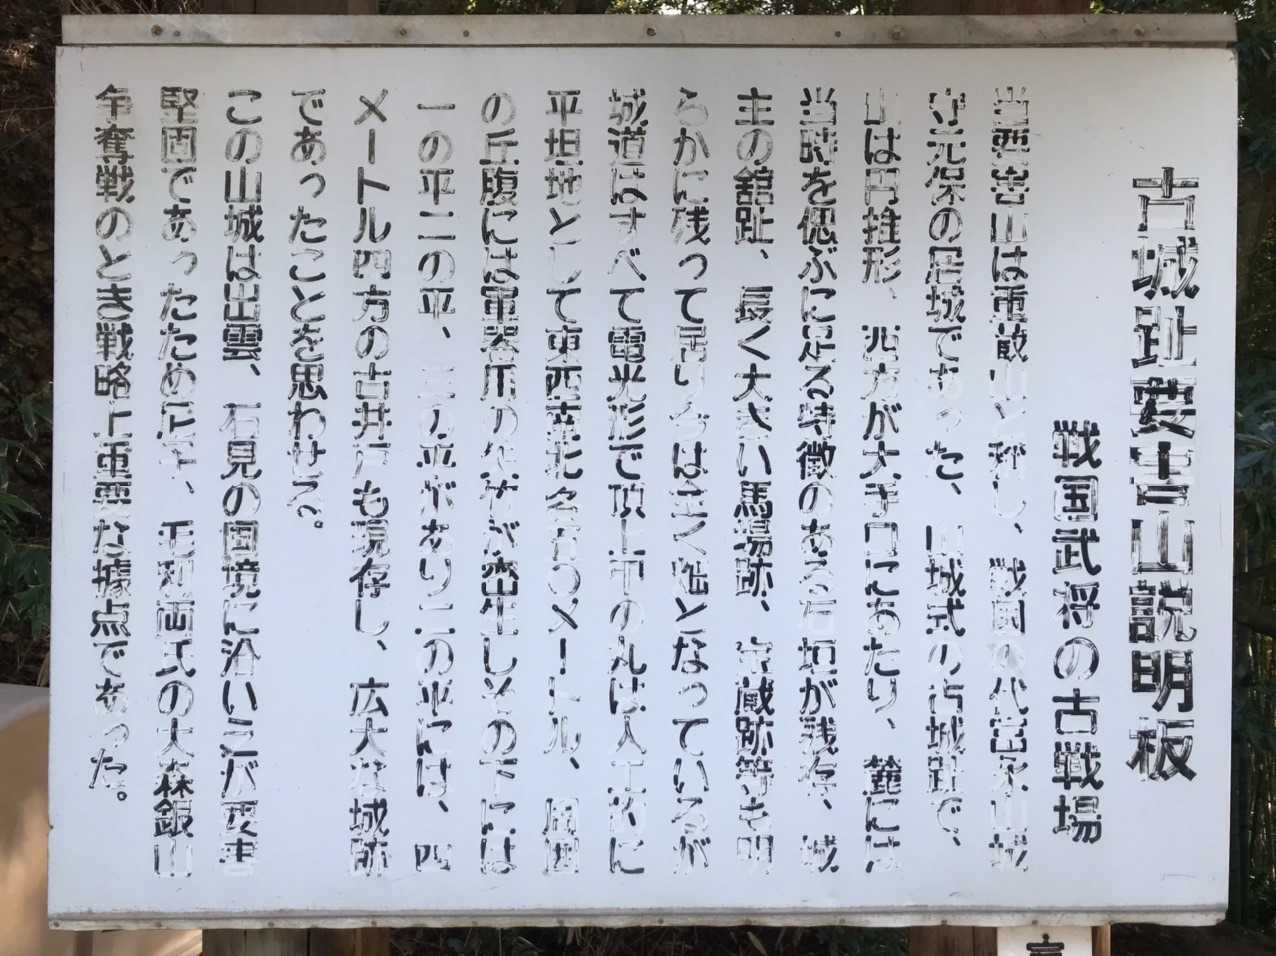 古城趾要害山説明板
戦国武将の古戦場
当要害山は重蔵山と称し、戦国の代富永山城
守元保の居城であった、山城式の古城趾で、
山は円推形、西方が大手口にあたり、麓には
当時を偲ぶに足る特徴のある石垣が残存、城
主の舘趾、長く大きい馬場跡、宝蔵跡等も明
らかに残って居り今は全く畑となっているが
城道はすべて電光形で頂上下の丸は人工的に
平坦地として東西南北各五〇メートル、周囲
の丘腹には軍器用の矢竹が密生しその下には
一の平二の平、三の平があり二の平には、四
メートル四方の古井戸も現存し、広大な城跡
であったことを思わせる。
この山城は出雲、石見の国境に沿いこが要害
堅固であったため尼子、毛利両氏の大森銀山
争奪戦のとき戦略上重要な據点であった。